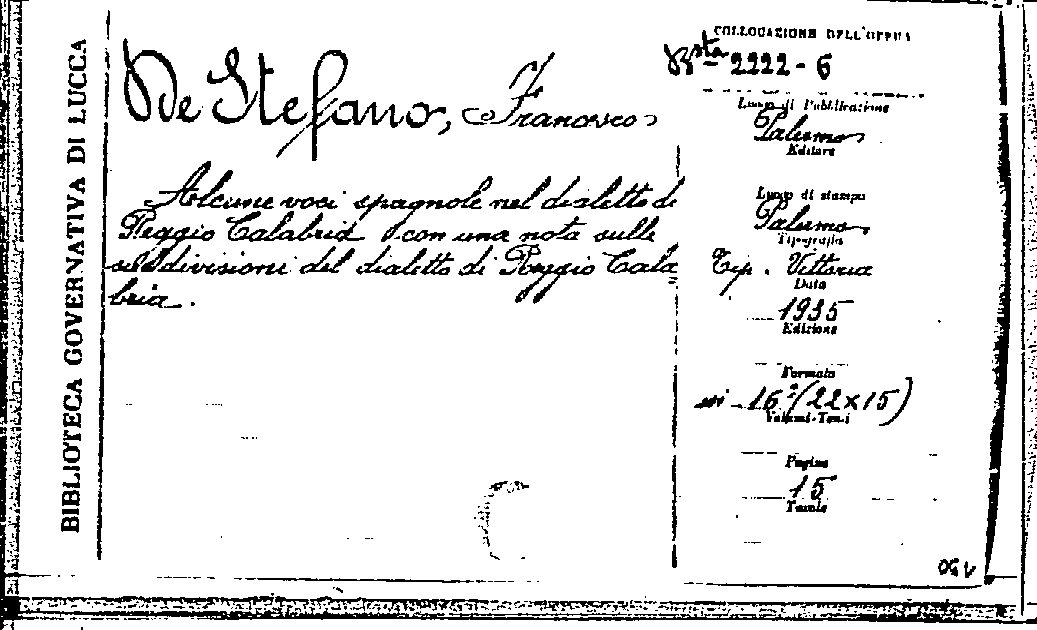 BIBLIOTECA GOVERNATIVA DI LUCCA
De Stefano, Francesco
Alcune voci spagnole nel dialetto di
Reggio Calabria con una nota sulle
suddivisioni del dialetto di Reggio Cala
bria.
COLLOCAZIONE DELL'OPERA
Bsta 2222-6
Luogo di Pubblicazione
Palermo
Editore
Luogo di stampa
Palermo
Tipografia
Tip. Vittoria
Data
1935
Edizione
Formato
in-16º (22x15)
Volumi-Tomi
Pagine
15
Tavole